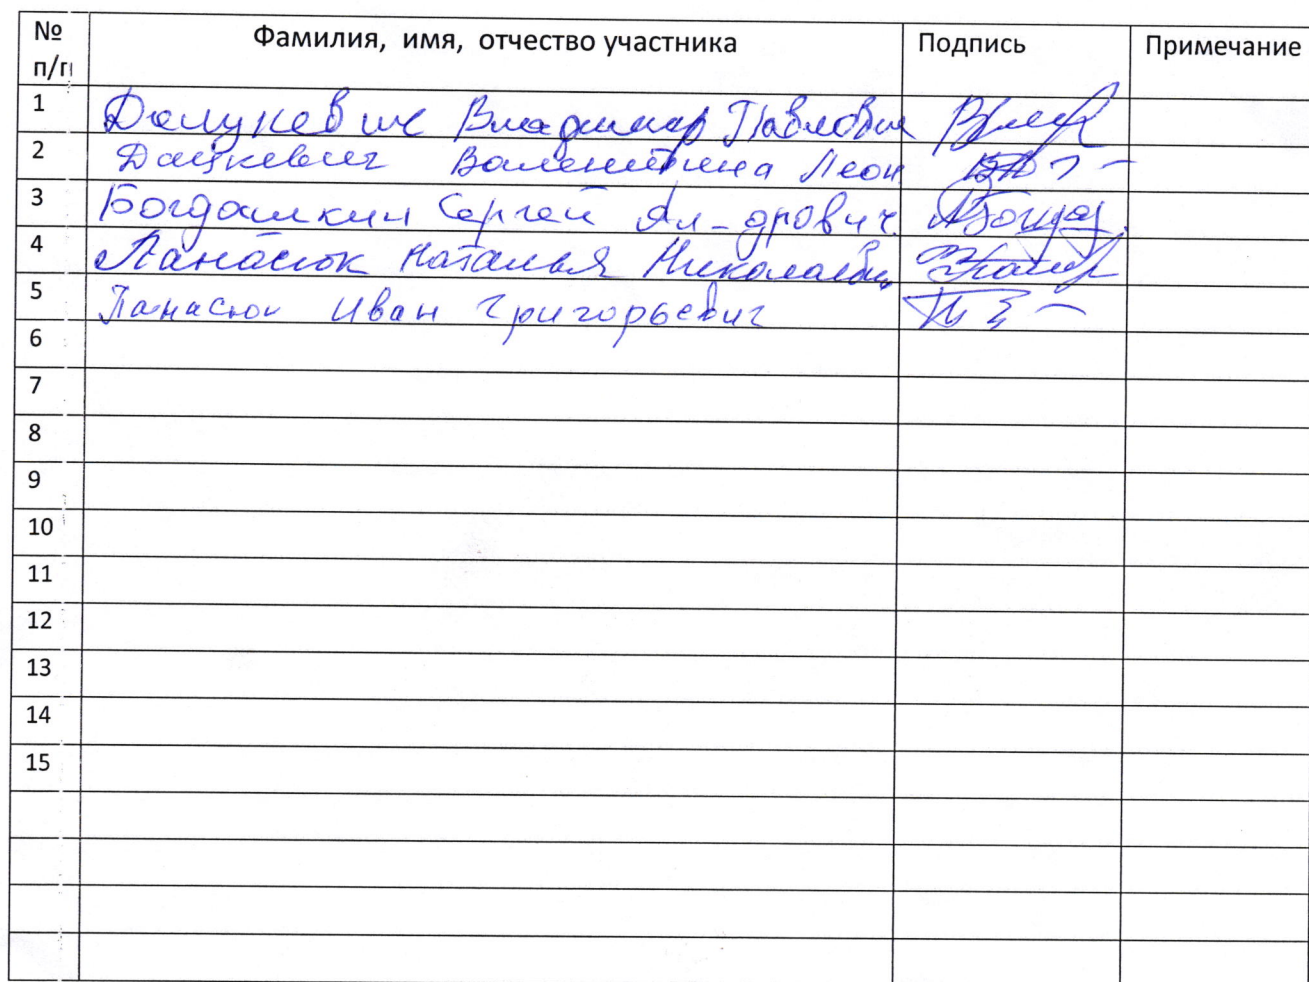 № п/п Фамилия, имя, отчество участника Подпись Примечание
1 Дацкевич Владимир Павлович
2 Дацкевич Валентина Леон
3 Богдашкин Сергей Ал-дрович
4 Панасюк Наталья Николаевн
5 Панасюк Иван Григорьевич
6
7
8
9
10
11
12
13
14
15